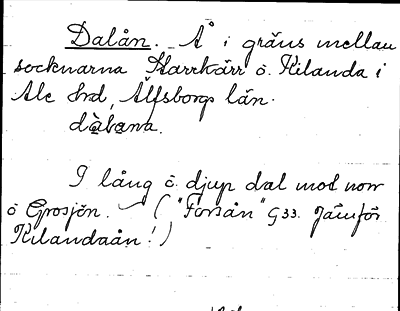 Dalån. Å i gräns mellan
socknarna Starrkärr o. Kilanda i
Ale hrd, Älfsborgs län.
dàlɑna.
I lång o. djup dal mot norr
o Grosjön. ("Forsån" G33. Jämför
Kilandaån!)